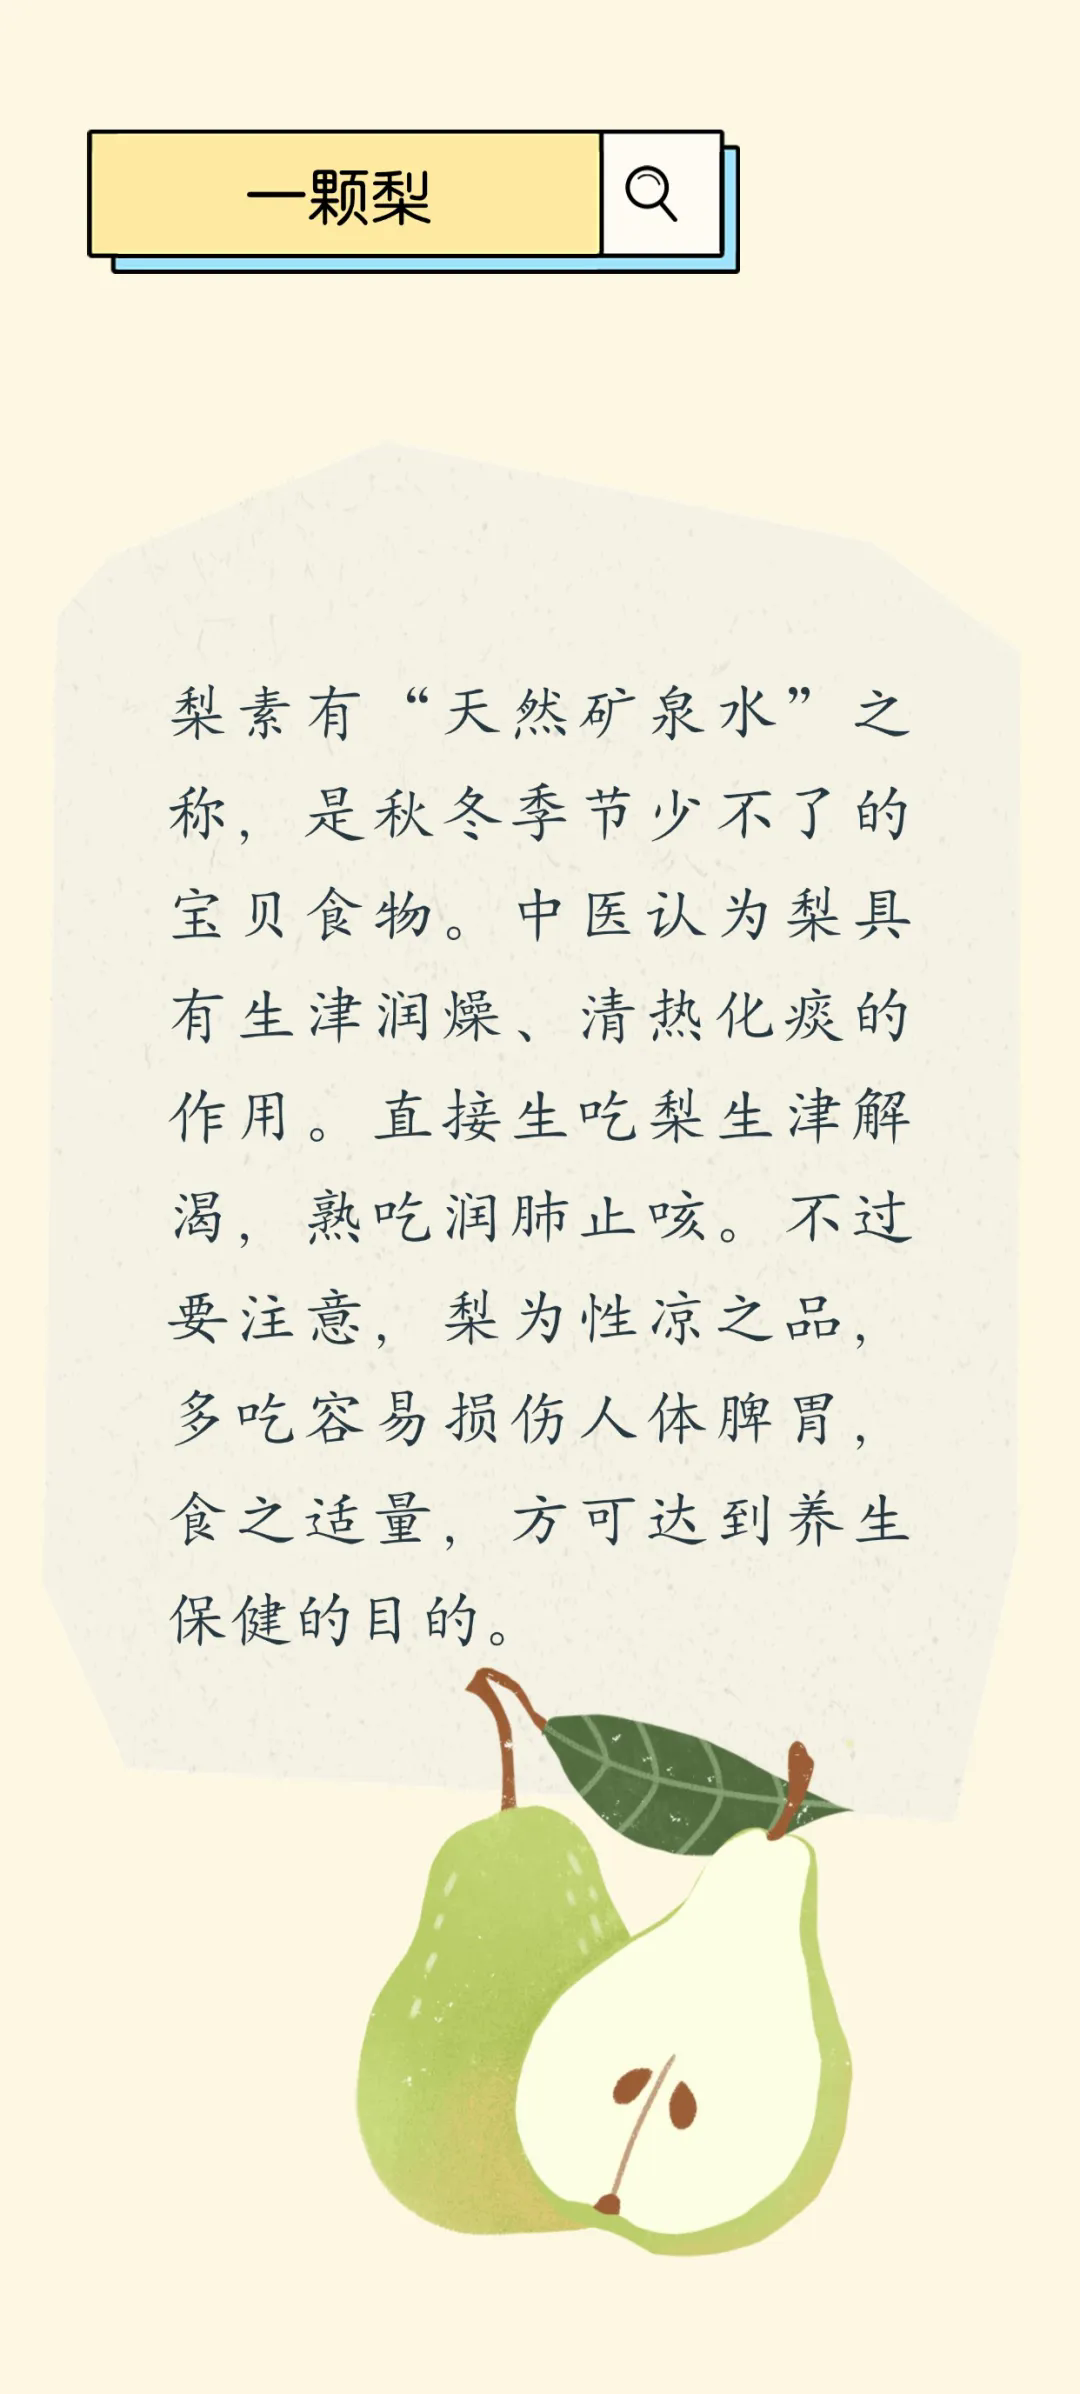 一颗梨
梨素有“天然矿泉水”之
称，是秋冬季节少不了的
宝贝食物。中医认为梨具
有生津润燥、清热化痰的
作用。直接生吃梨生津解
渴，熟吃润肺止咳。不过
要注意，梨为性凉之品，
多吃容易损伤人体脾胃，
食之适量，方可达到养生
保健的目的。